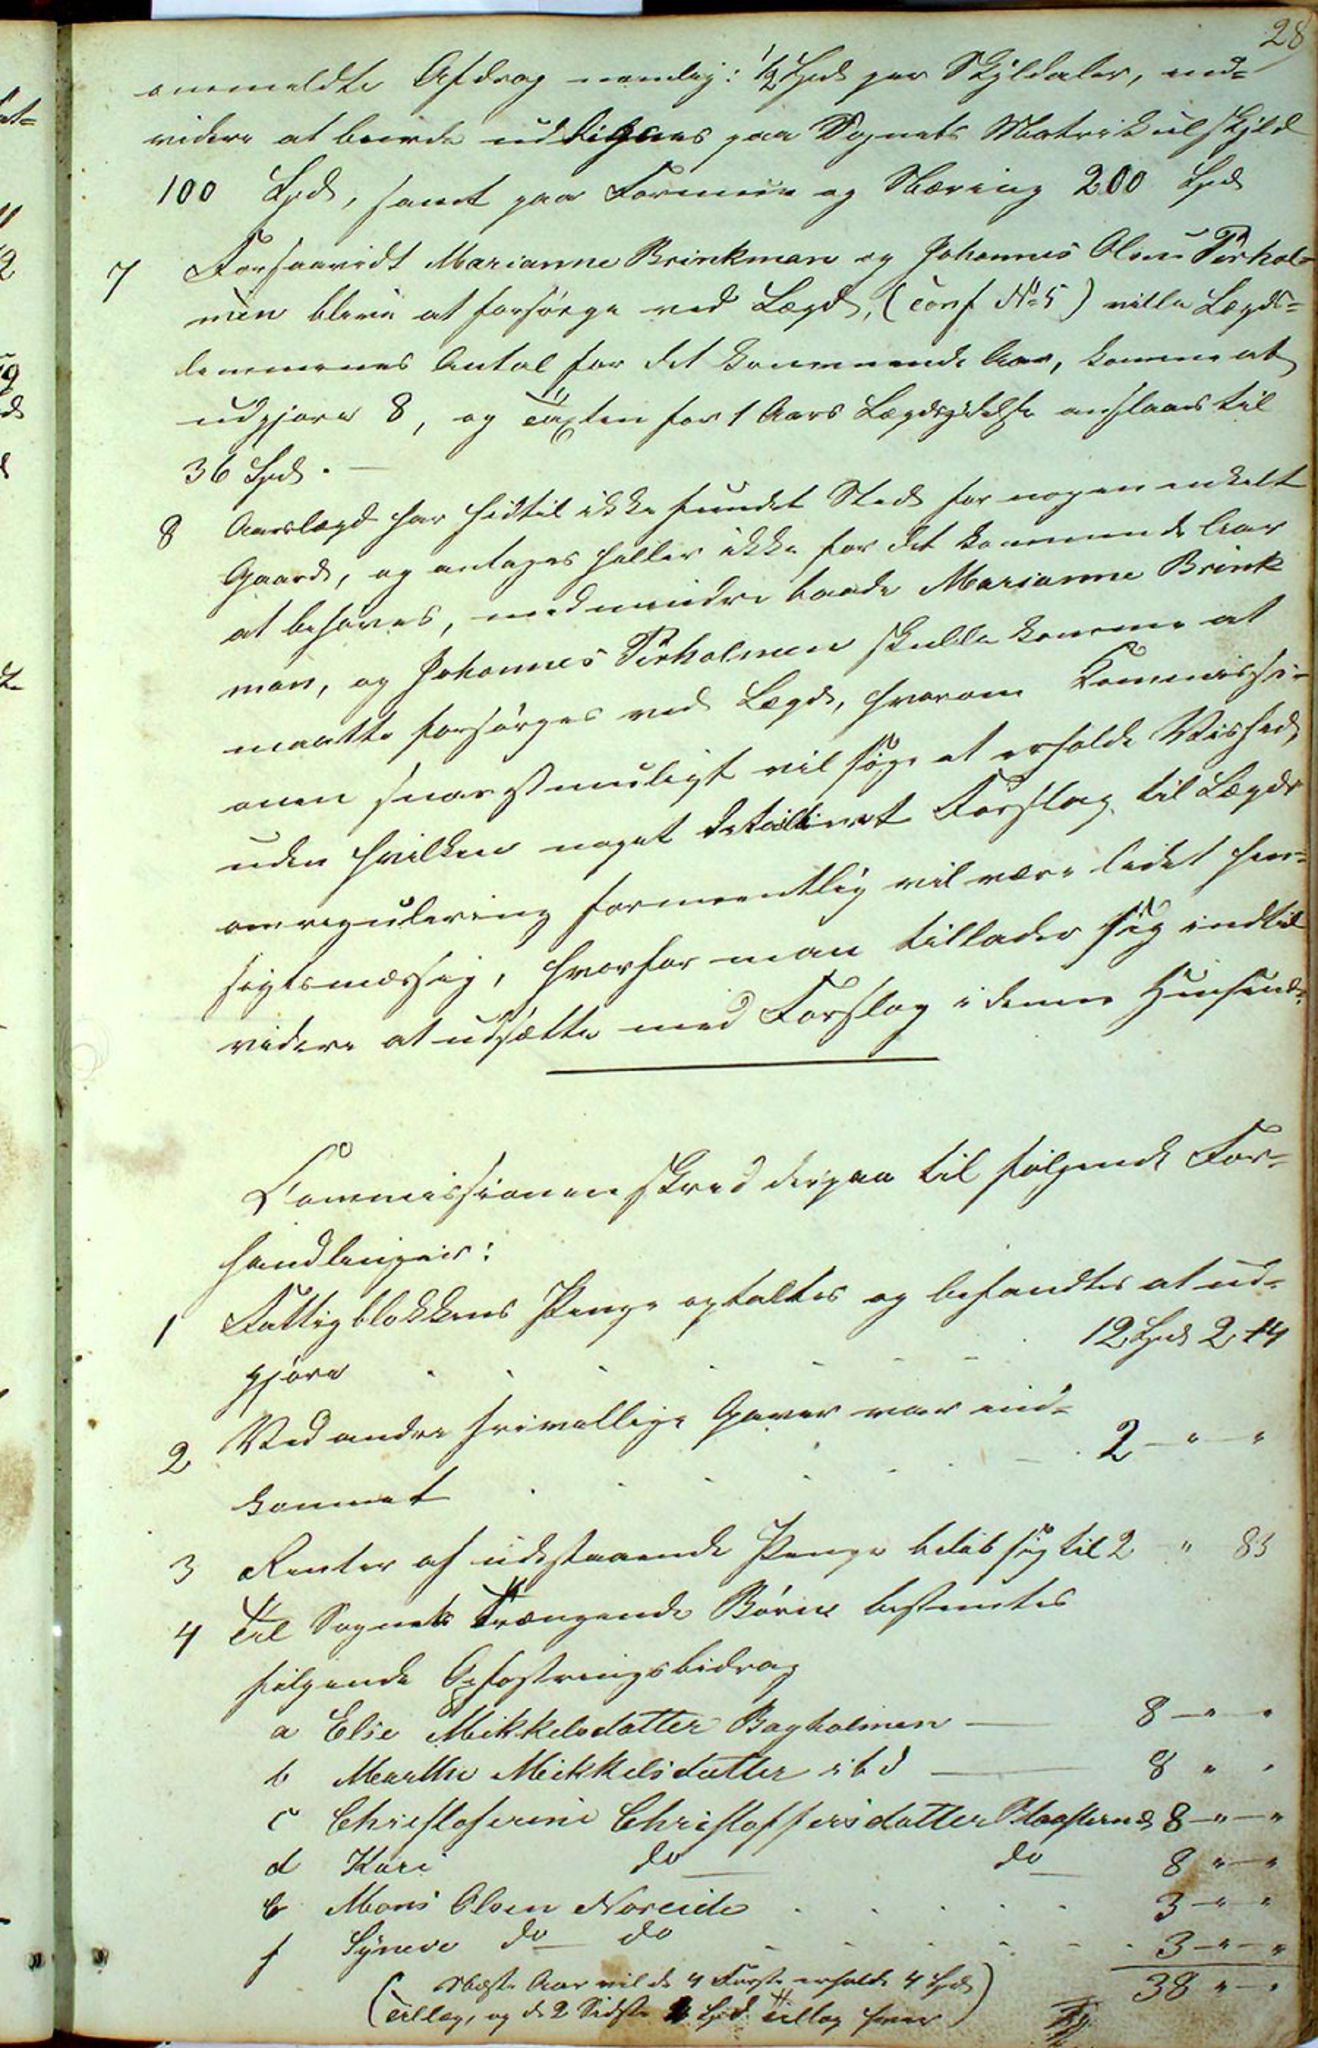 28
anemeldte Afdrag nemlig: 1/2 Spd per Skyldaler, end-
videre at burde udlignes paa Sognets Matrikulskyld
100 Spd, samt paa Formue og Næring 200 Spd
7 Forsaavidt Marianne Brinkman og Johannes Olsen Tirhol-
men bleve at forsörge ved Lægd, (conf No 5) ville Lægds-
lemmernes Antal for det kommende Aar, komme at
udgjöre 8, og Taxten for 1 Aars Lægdsydelse anslaaes til
36 Spd. —
8 Aarslægd har hidtil ikke fundet Sted for nogen enkelt
Gaard, og antages heller ikke for det kommende Aar
at behöves, medmindre baade Marianne Brink
man, og Johannes Tirholmen skulle komme at
maatte forsörges ved Lægd, hvorom Commissi-
onen snarestmuligt vil söge at erholde Vished,
uden hvilken noget detailleret Forslag til Lægds
omregulering formeentlig vil være lidet hen-
sigtsmæssig, hvorfor man tillader sig indtil
videre at udsætte med Forslag i denne Henseende.
Commissionen skred derpaa til fölgende For-
handlinger:
1 Fattigblokkens Penge optaltes og befandtes at ud-
gjöre . . . . . . 12 Spd 2 14
2 Ved andre frivillige Gaver var ind-
kommet . . . . . . 2 — " — "
3 Renter af udestaaende Penge belöb sig til 2 " 83
4 Til Sognets Trængende Börn bestemtes
fölgende Opfostringsbidrag
a Else Mikkelsdatter Bagholmen — 8 — " "
b Marthe Mikkelsdatter ibd — 8 " "
c Christoferine Christoffersdatter 8 — " — "
d Kari do do 8 " — "
e Mons Olsen Noreide . . . . . 3 — " "
f Syneve do do . . . . . 3 — " — "
38 " — "
(Næste Aar vil de 4 Förste erholde 4 Spd
Tillæg, og de 2 Sidste Spd Tillæg hver)